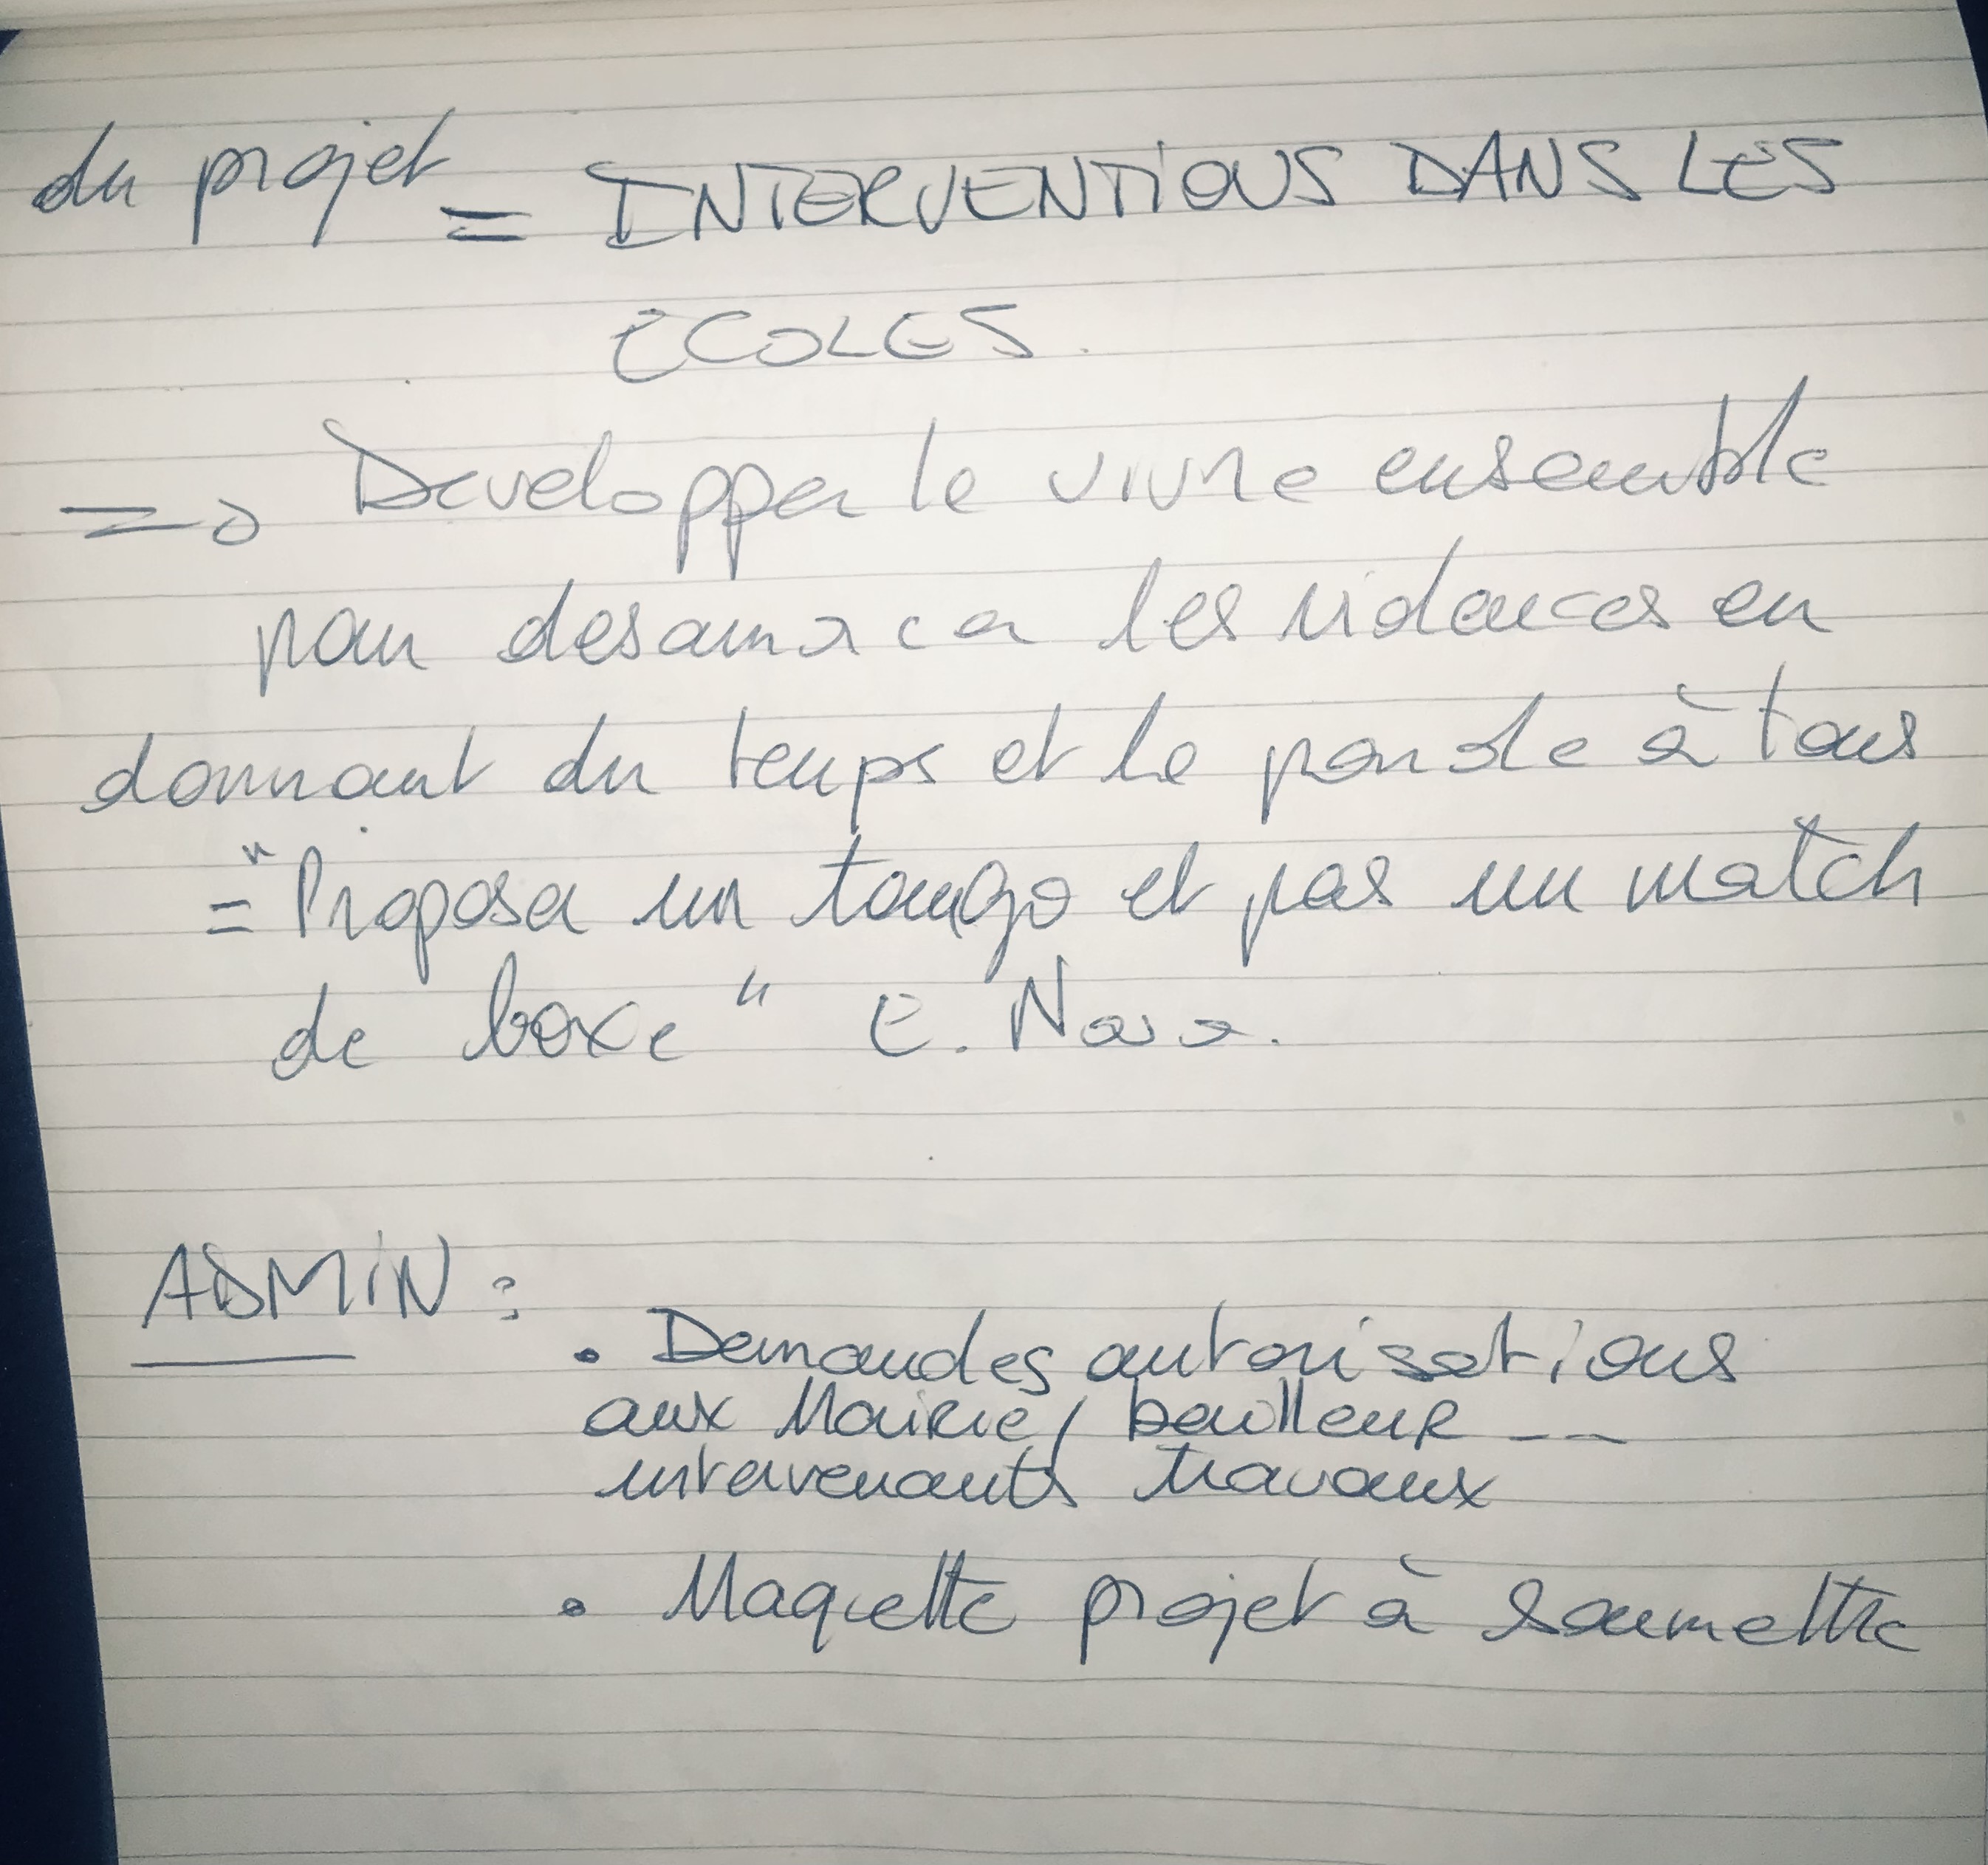 du projet = INTERVENTIONS DANS LES
ECOLES.
=> Developper le vivre ensemble
pour desamorcer les violences en
donnant du temps et la parole à tous
= "Proposer un tango et pas un match
de boxe" E.
ADMIN :
• Demandes autorisations
aux Mairie/ bailleur ---
intervenants travaux
• Maquette projet à soumettre